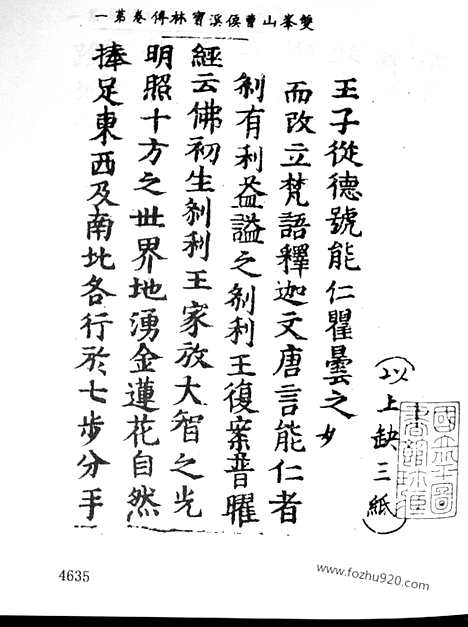 雙峯山曹侯溪寶林傳卷第一
(以上缺三紙)
王子從德號能仁瞿曇之
而改立梵語釋迦文唐言能仁者
刹有利益謚之刹利王復案普曜
經云佛初生刹利王家放大智之光
明照十方之世界地湧金蓮花自然
捧足東西及南北各行於七步分手
4635
www.fozhu920.com